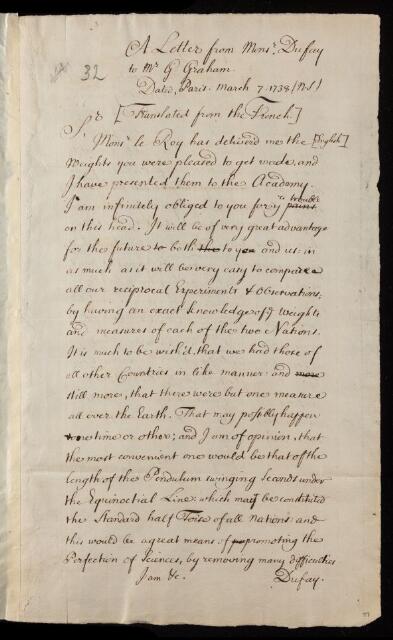 32
A Letter from Monsr. Dufay
to Mr. G Graham.
Dated, Paris. March 7. 1738 (N.S)
[Translated from the French.]
Sr
Monsr. le Roy has deliverd me the [English]
Weights you were pleased to get made, and
I have presented them to the Academy.
I am infinitely obliged to you for yr. trouble pains
on this head. It will be of very great advantage
for the future to both the to you and us: in
as much as it will be very easy to compare
all our reciprocal Experiments & Observations,
by having an exact knowledge of ye Weights
and measures of each of the two Nations.
It is much to be wish'd, that we had those of
all other Countries in like manner and more
still more, that there were but one measure
all over the Earth. That may possibly happen
some time or other; and I am of opinion, that
the most convenient one would be that of the
length of the Pendulum swinging Seconds under
the Equinoctial Line: which may be constituted
the Standard half Toise of all Nations: and
this would be a great means of promoting the
Perfection of Sciences, by removing many difficulties
I am &c. Dufay.